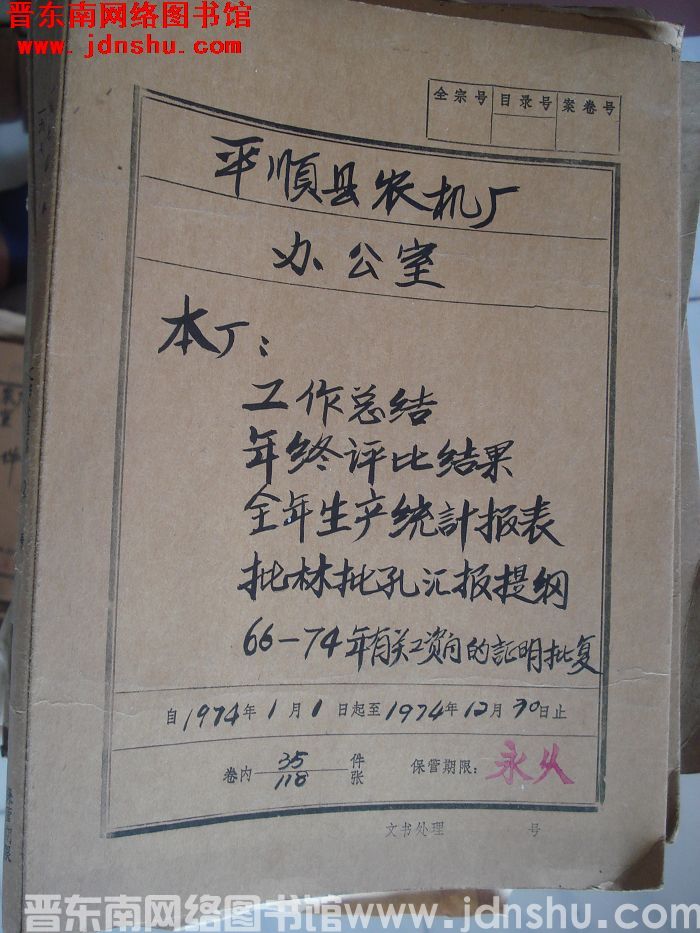 晋东南网络图书馆
www.jdnshu.com
全宗号 目录号 案卷号
平顺县农机厂
办公室
本厂：
工作总结
年终评比结果
全年生产统計报表
批林批孔汇报提纲
66-74年有关工资向的証明批复
自1974年1月1日起至1974年12月30日止
卷内 35 件 保管期限：永久
118 张
文书处理 号
保管期限
晋东南网络图书馆www.jdnshu.com